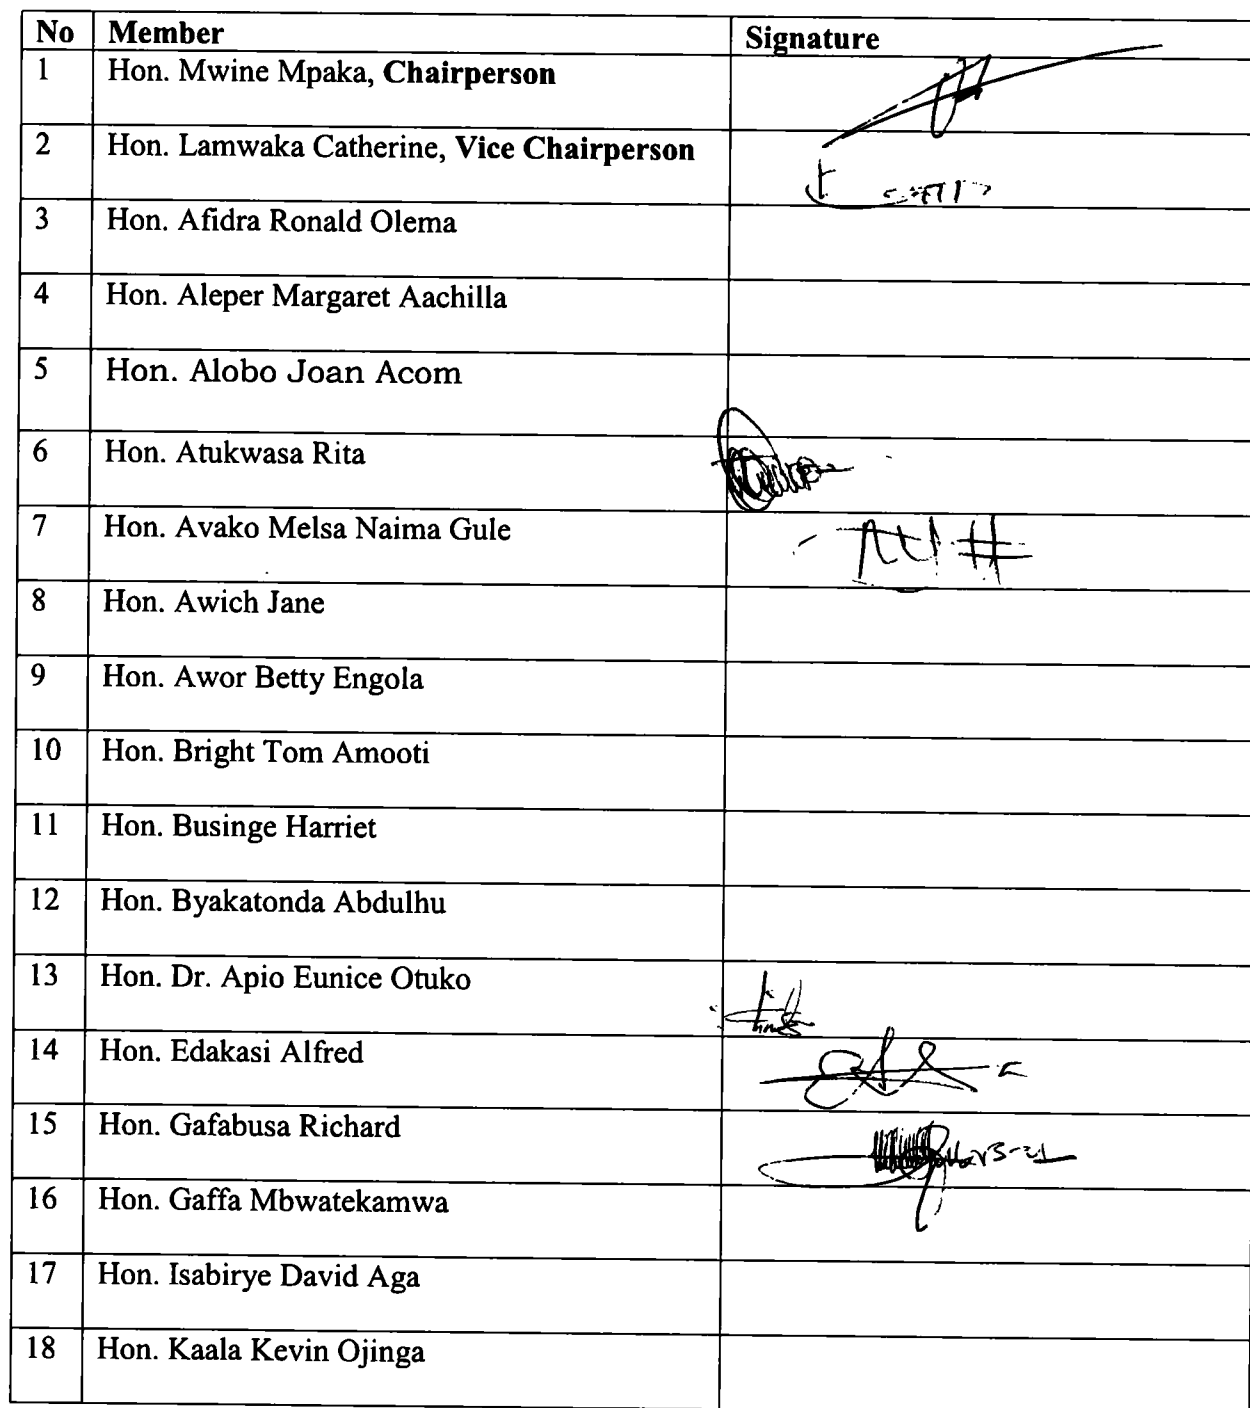 No Member Signature
1 Hon. Mwine Mpaka, Chairperson
2 Hon. Lamwaka Catherine, Vice Chairperson
3 Hon. Afidra Ronald Olema
4 Hon. Aleper Margaret Aachilla
5 Hon. Alobo Joan Acom
6 Hon. Atukwasa Rita
7 Hon. Avako Melsa Naima Gule
8 Hon. Awich Jane
9 Hon. Awor Betty Engola
10 Hon. Bright Tom Amooti
11 Hon. Businge Harriet
12 Hon. Byakatonda Abdulhu
13 Hon. Dr. Apio Eunice Otuko
14 Hon. Edakasi Alfred
15 Hon. Gafabusa Richard
16 Hon. Gaffa Mbwatekamwa
17 Hon. Isabirye David Aga
18 Hon. Kaala Kevin Ojinga